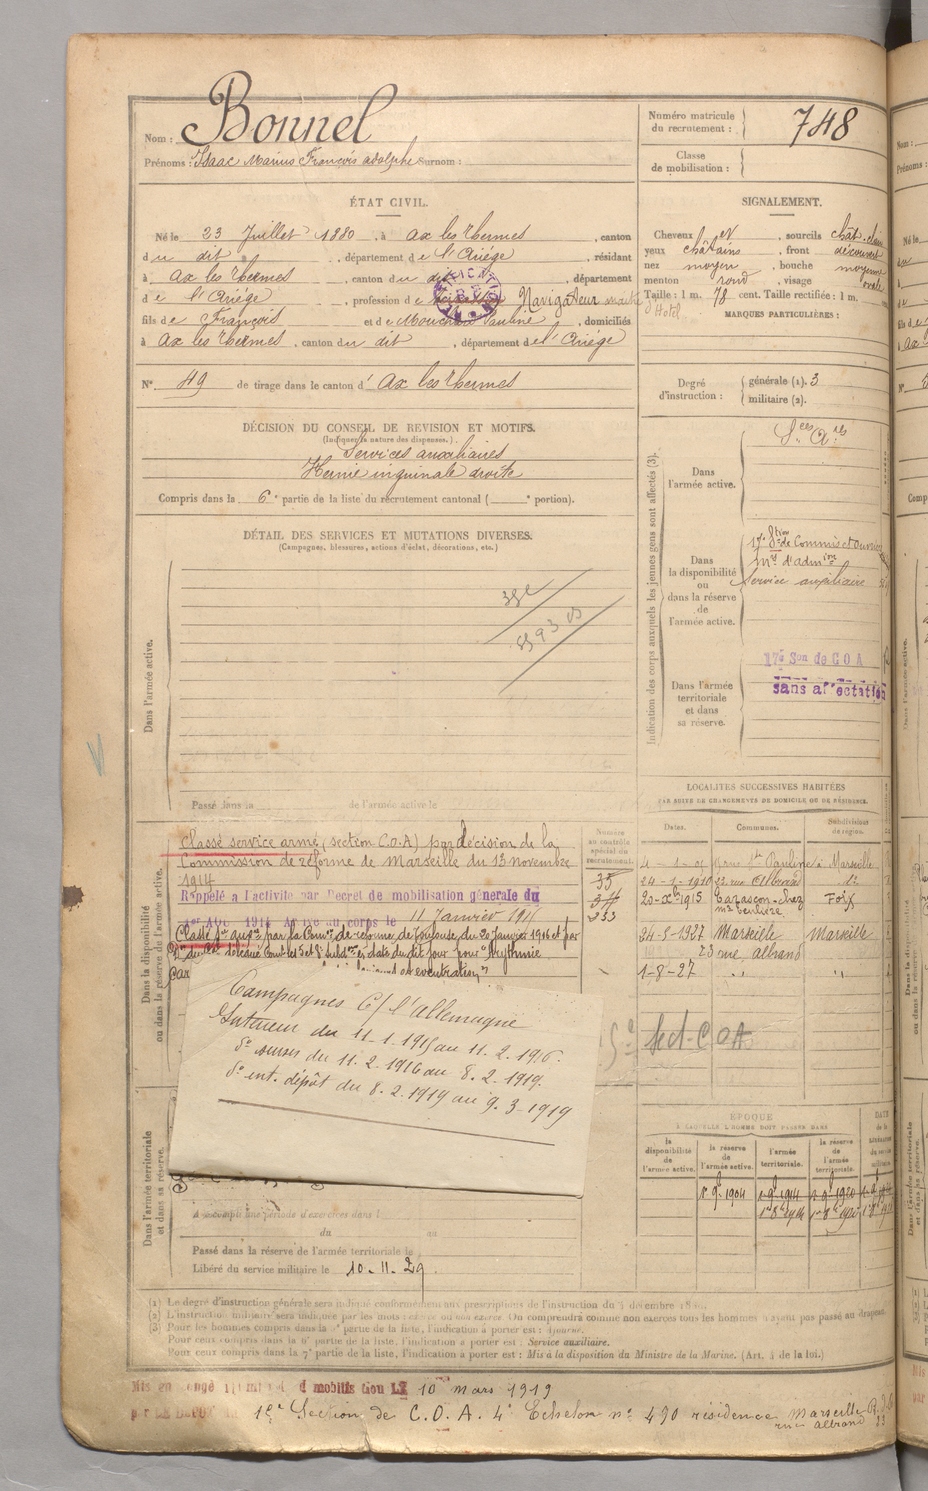 Nom : Bonnel
Prénoms : Isaac Marius François adolphe Surnom :
Numéro matricule du recrutement : 748
Classe de mobilisation :
ÉTAT CIVIL.
Né le 23 Juillet 1880, à ax les thermes, canton
du dit, département de l'Ariége, résidant
à ax les thermes, canton du dit, département
de l'Ariége, profession de Navigateur
fils de François et de Pauline, domiciliés
à ax les thermes, canton du dit, département de l'Ariége
N° 49 de tirage dans le canton d'Ax les thermes
SIGNALEMENT.
Cheveux et sourcils chât. clair
yeux châtains, front découvert
nez moyen, bouche moyenne
menton rond, visage ovale
Taille : 1 m. 78 cent. Taille rectifiée : 1 m.
MARQUES PARTICULIÈRES :
Degré d'instruction : générale (1). 3
militaire (2).
DÉCISION DU CONSEIL DE REVISION ET MOTIFS.
(Indiquer la nature des dispenses.)
Services auxiliaires
Hernie inguinale droite
Compris dans la 6e partie de la liste du recrutement cantonal ( e portion).
DÉTAIL DES SERVICES ET MUTATIONS DIVERSES.
(Campagnes, blessures, actions d'éclat, décorations, etc.)
Dans l'armée active.
Passé dans la de l'armée active le
Indication des corps auxquels les jeunes gens sont affectés (3).
Dans l'armée active.
Sces Ares
Dans la disponibilité ou dans la réserve de l'armée active.
17e Stion de Commis et ouvriers
mres d'admion
Service auxiliaire
Dans l'armée territoriale et dans sa réserve.
17e Son de COA
sans affectation
Dans la disponibilité ou dans la réserve de l'armée active.
Classé service armé (section C.O.A) par décision de la
Commission de réforme de Marseille du 13 novembre
1914
Rappelé à l'activité par Décret de mobilisation générale du
1er AOU 1914 Arrivé au corps le 11 Janvier 1915
Classé Sce auxre par la Comon de réforme de Toulouse du 20 Janvier 1916 et par
Arythmie
Campagnes C/ l'allemagne
Intérieur du 11-1-1915 au 11.2.1916.
do du 11.2.1916 au 8.2.1919.
do int. dépôt du 8.2.1919 au 9.3-1919
Numéro au contrôle spécial du recrutement.
LOCALITÉS SUCCESSIVES HABITÉES
PAR SUITE DE CHANGEMENTS DE DOMICILE OU DE RÉSIDENCE.
Dates. Communes. Subdivisions de région.
Pauline à Marseille
24-1-1910 22 rue Albrand do
20-Xbre 1915 Tarascon chez Foix
24-5-1927 Marseille Marseille
23 rue albrand
1-8-27 " "
Sect-COA
ÉPOQUE
À LAQUELLE L'HOMME DOIT PASSER DANS
la disponibilité de l'armée active.
la réserve de l'armée active.
l'armée territoriale.
la réserve de l'armée territoriale.
1er 9bre 1904
Dans l'armée territoriale et dans sa réserve.
A accompli une période d'exercices dans l
du au
Passé dans la réserve de l'armée territoriale le
Libéré du service militaire le 10-11-29
(1) Le degré d'instruction générale sera indiqué conformément aux prescriptions de l'instruction du 4 décembre
(2) L'instruction militaire sera indiquée par les mots : exercé ou non exercé. On comprendra comme non exercés tous les hommes n'ayant pas passé au drapeau.
(3) Pour les hommes compris dans la partie de la liste, l'indication à porter est :
Pour ceux compris dans la 6e partie de la liste, l'indication à porter est : Service auxiliaire.
Pour ceux compris dans la 7e partie de la liste, l'indication à porter est : Mis à la disposition du Ministre de la Marine. (Art. 4 de la loi.)
Mis en congé illimité de démobilisation LE 10 mars 1919
par LE DEPOT Section de C.O.A. 4e Echelon no 490 résidence Marseille
rue albrand 23